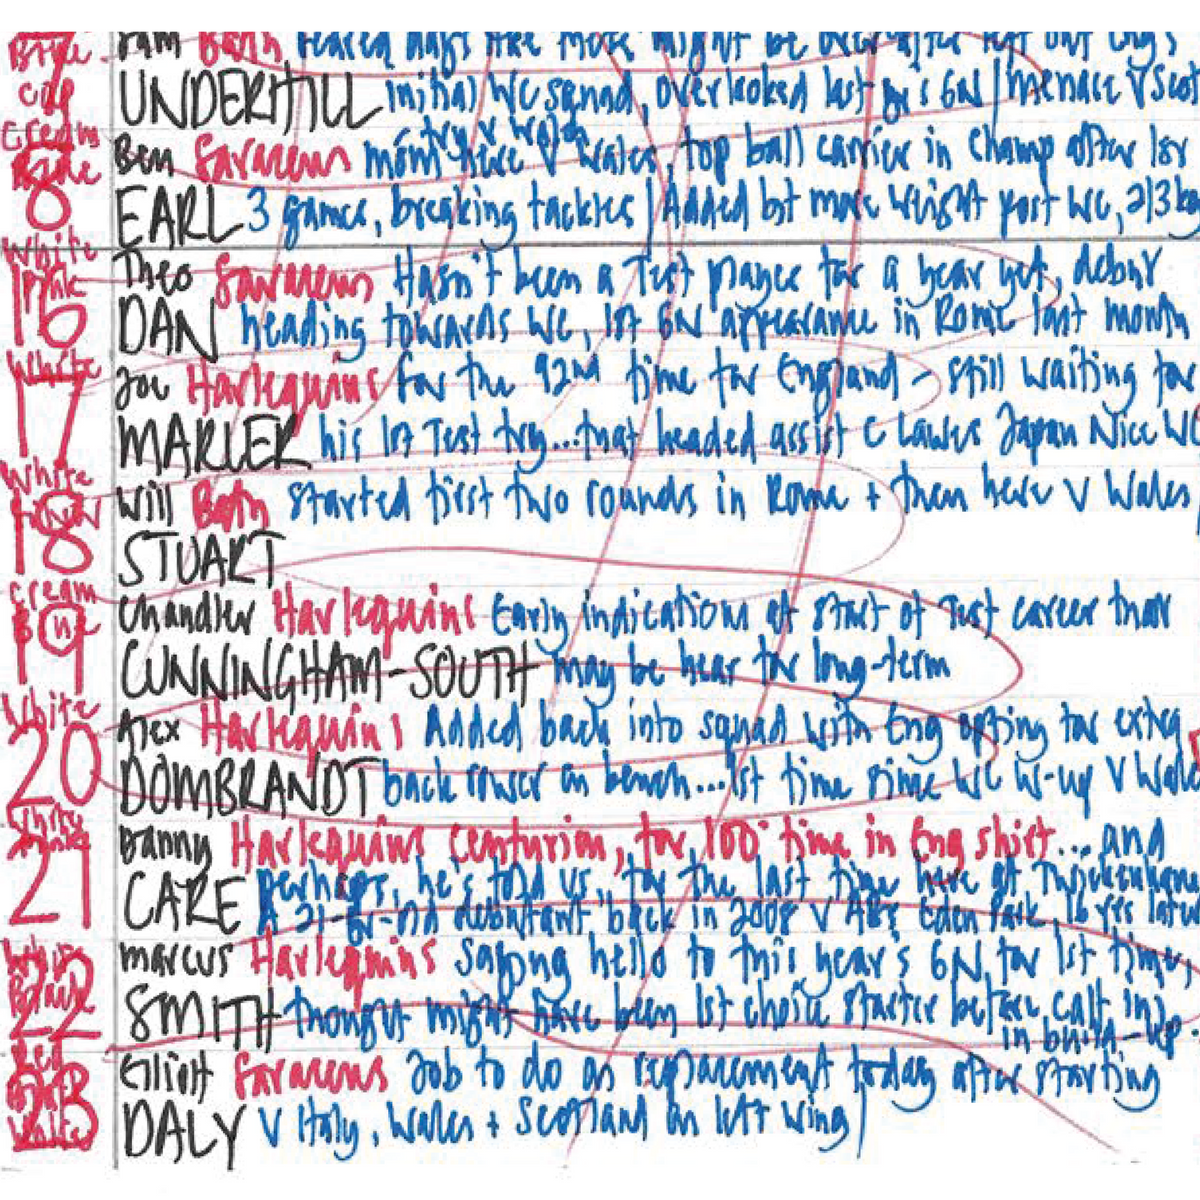 Sam Bath feared days like these might be over after left out Eng's
cap
7 UNDERHILL initial WC squad, overlooked last yr's 6N | menace V Scot
cream
try v Wales
Ben Saracens mom here V Wales, top ball carrier in Champ after 1st
8 EARL 3 games, breaking tackles | Added bit more weight post WC, 2/3 kg
White
Pink
Theo Saracens Hasn't been a Test player for a year yet, debut
16 DAN heading towards WC, 1st 6N appearance in Rome last month
White
Joe Harlequins for the 92nd time for England - still waiting for
17 MARLER his 1st Test try...that headed assist C Lawes Japan Nice WC
White
Will Bath Started first two rounds in Rome + then here V Wales
18 STUART
cream
Chandler Harlequins Early indications at start of Test career that
19 CUNNINGHAM-SOUTH may be hear for long-term
White
Alex Harlequins Added back into squad with Eng opting for extra
20 DOMBRANDT back rower on bench...1st time since WC w-up V Wales
White
Danny Harlequins Centurion, for 100th time in Eng shirt... and
21 CARE perhaps, he's told us, for the last time here at Twickenham
A 21-yr-old debutant back in 2008 V ABs Eden Park, 16 yrs later
White
Marcus Harlequins Saying hello to this year's 6N for 1st time,
22 SMITH thought might have been 1st choice starter before calf inj
in build-up
Red
Elliott Saracens Job to do as replacement today after starting
23 DALY V Italy, Wales + Scotland on left wing |
White